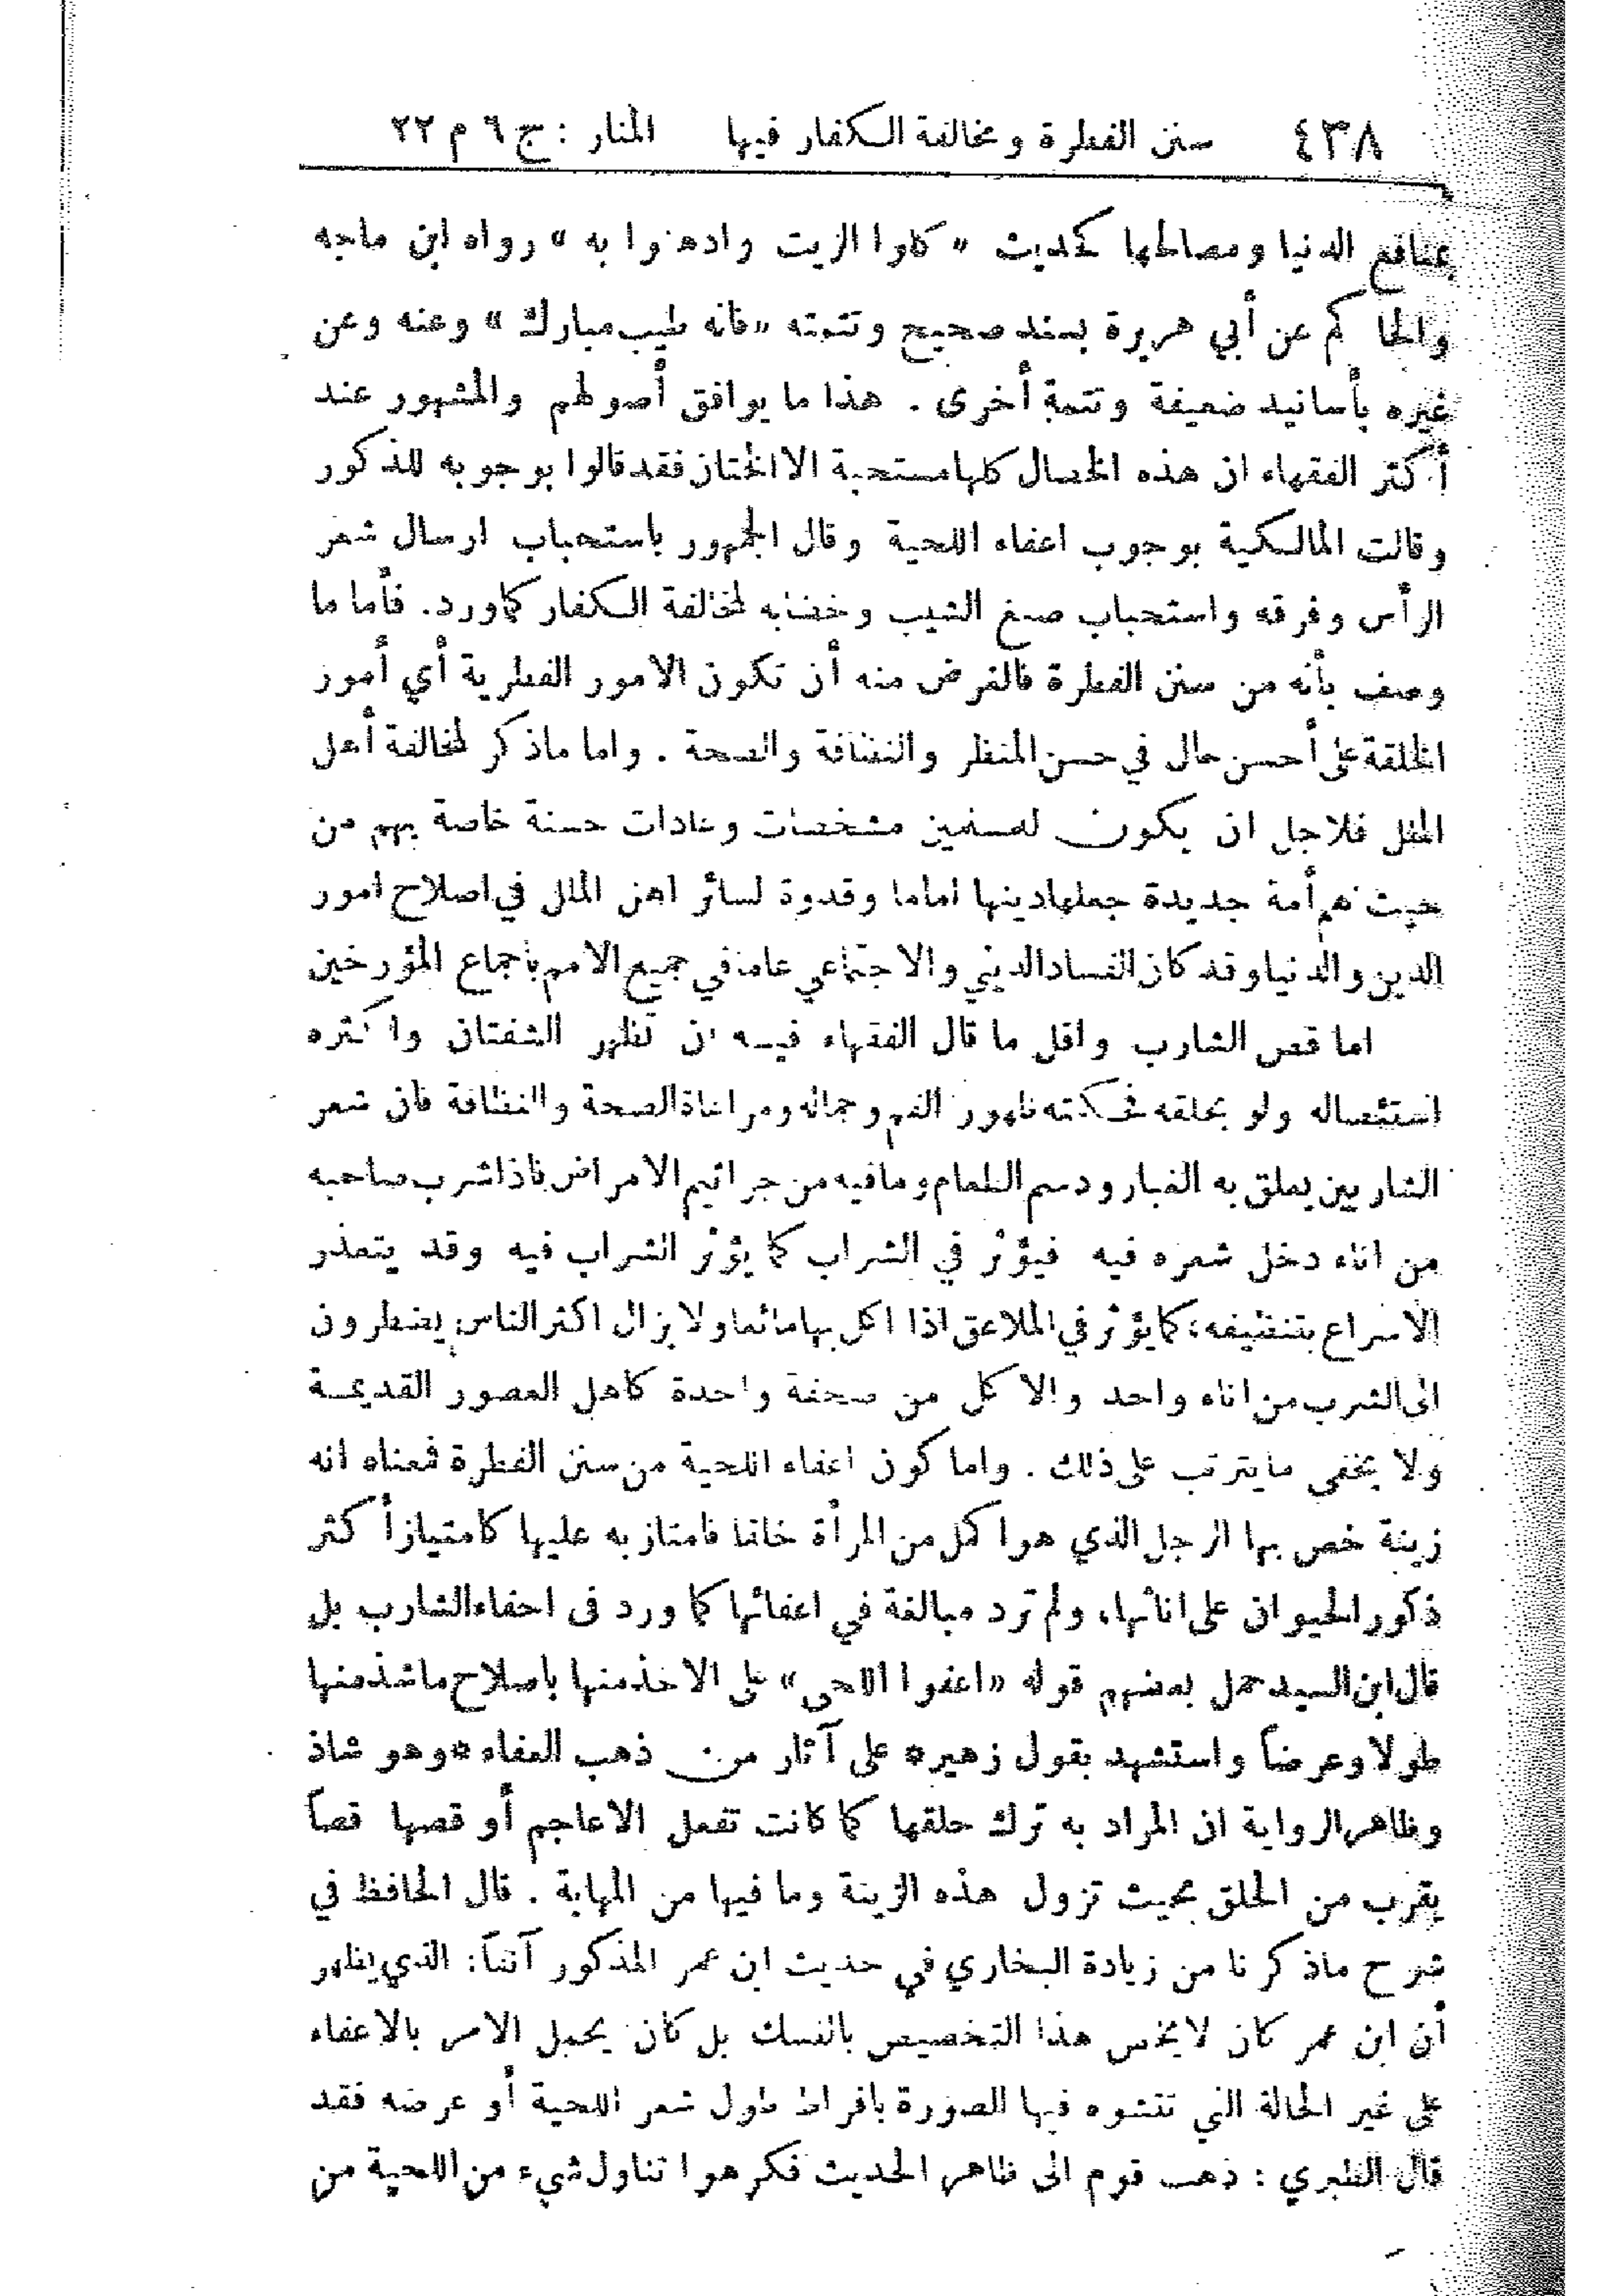 ٤٣٨ سنن الفطرة ومخالفة الكفار فيها المنار : ج ٦ م ٢٢
بمنافع الدنيا ومصالحها كحديث « كلوا الزيت وادهنوا به » رواه ابن ماجه
والحاكم عن أبي هريرة بسند صحيح وتتمته «فانه طيب مبارك » وعنه وعن
غيره بأسانيد ضعيفة وتتمة أخرى . هذا ما يوافق أصولهم والمشهور عند
أكثر الفقهاء ان هذه الخصال كلها مستحبة الا الختان فقد قالوا بوجوبه للذكور
وقالت المالكية بوجوب اعفاء اللحية وقال الجمهور باستحباب ارسال شعر
الرأس وفرقه واستحباب صبغ الشيب وخضابه لمخالفة الكفار كما ورد. فأما ما
وصف بأنه من سنن الفطرة فالغرض منه أن تكون الامور الفطرية أي أمور
الخلقة على أحسن حال في حسن المنظر والنظافة والصحة . واما ماذكر لمخالفة أهل
الملل فلاجل ان يكون للمسلمين مشخصات وعادات حسنة خاصة بهم من
حيث هم أمة جديدة جعلها دينها اماما وقدوة لسائر اهل الملل في اصلاح امور
الدين والدنيا وقد كان الفساد الديني والاجتماعي عاما في جميع الامم باجماع المؤرخين
اما قص الشارب واقل ما قال الفقهاء فيه ان تظهر الشفتان واكثره
استئصاله ولو بحلقه فحكمته ظهور الفم وجماله ومراعاة الصحة والنظافة فان شعر
الشاربين يعلق به الغبار ودسم الطعام وما فيه من جراثيم الامراض فاذا شرب صاحبه
من اناء دخل شعره فيه فيؤثر في الشراب كما يؤثر الشراب فيه وقد يتعذر
الاسراع بتنظيفه، كما يؤثر في الملاعق اذا اكل بها مائعا ولا يزال اكثر الناس يضطرون
الى الشرب من اناء واحد والاكل من صحفة واحدة كاهل العصور القديمة
ولا يخفى ما يترتب على ذلك . واما كون اعفاء اللحية من سنن الفطرة فمعناه انه
زينة خص بها الرجل الذي هو اكمل من المرأة خلقا فامتاز به عليها كامتياز أكثر
ذكور الحيوان على اناثها، ولم ترد مبالغة في اعفائها كما ورد فى احفاء الشارب بل
قال ابن السيد حمل بعضهم قوله «اعفوا اللحى» على الاخذ منها باصلاح ما شذ منها
طولا وعرضاً واستشهد بقول زهير * على آثار من ذهب العفاء * وهو شاذ
وظاهر الرواية ان المراد به ترك حلقها كما كانت تفعل الاعاجم أو قصها قصاً
يقرب من الحلق بحيث تزول هذه الزينة وما فيها من المهابة . قال الحافظ في
شرح ماذكرنا من زيادة البخاري في حديث ابن عمر المذكور آنفاً: الذي يظهر
أن ابن عمر كان لا يخص هذا التخصيص بالنسك بل كان يحمل الامر بالاعفاء
على غير الحالة التي تتشوه فيها الصورة بافراط طول شعر اللحية أو عرضه فقد
قال الطبري : ذهب قوم الى ظاهر الحديث فكرهوا تناول شيء من اللحية من